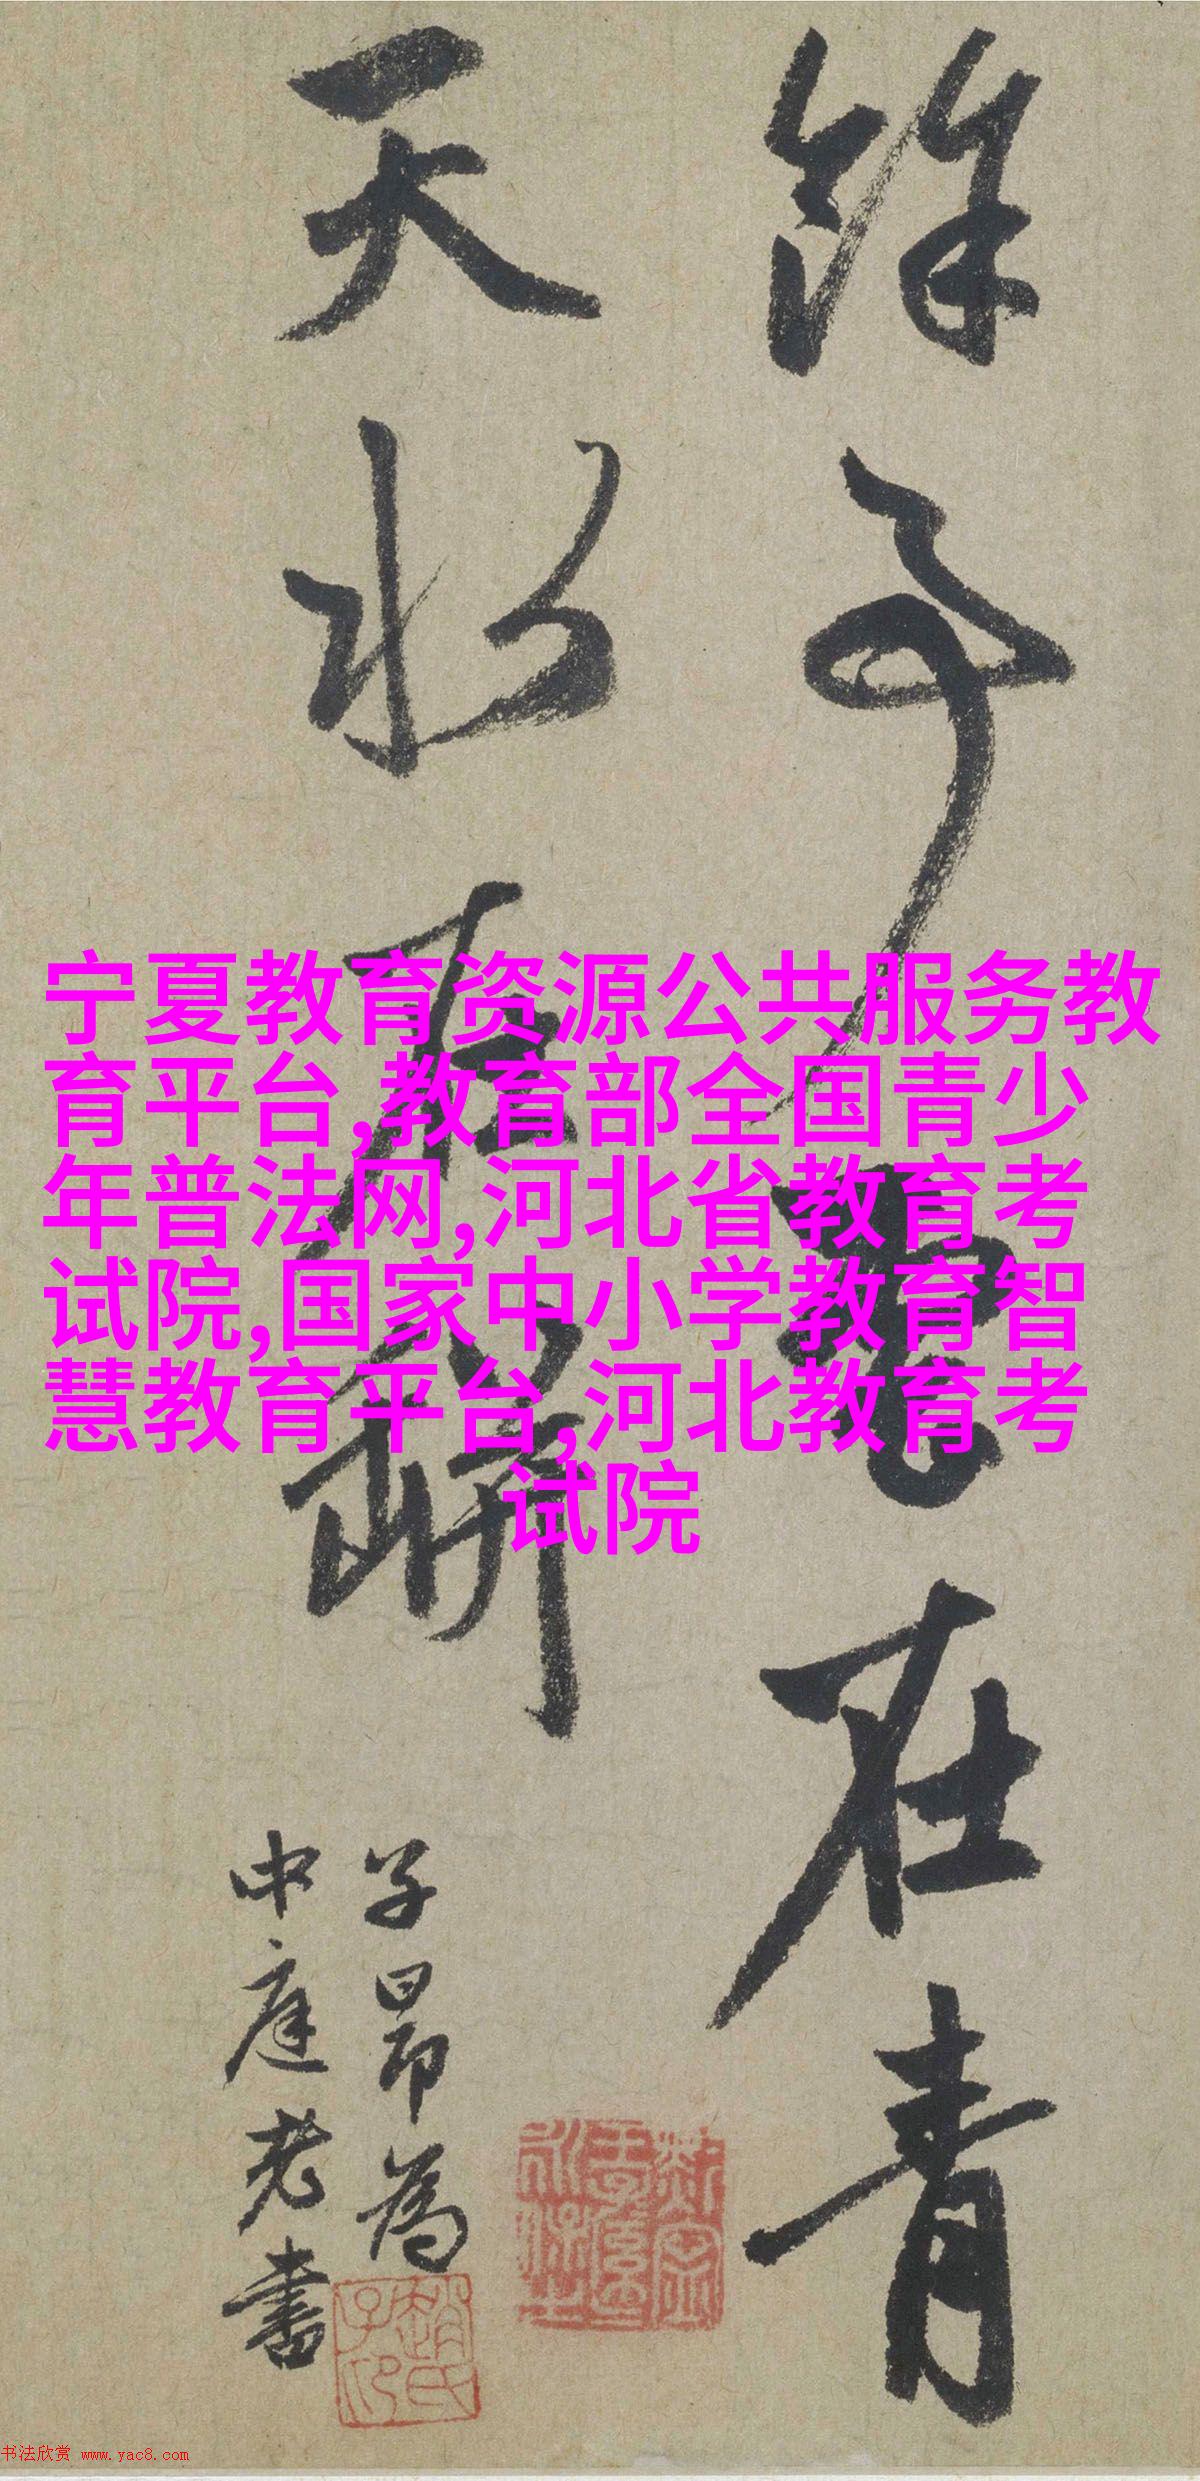 餘事雲在青
天水在瓶
宁夏教育资源公共服务教
育平台,教育部全国青少
年普法网,河北省教育考
试院,国家中小学教育智
慧教育平台,河北教育考
试院
子昂為
中庭老書
趙氏子印
书法欣赏 www.yac8.com